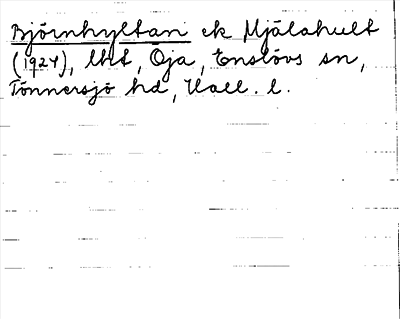 Björnhyltan ek Mjälahult
(1924), lht, Öja, Enslövs sn,
Tönnersjö hd, Hall. l.